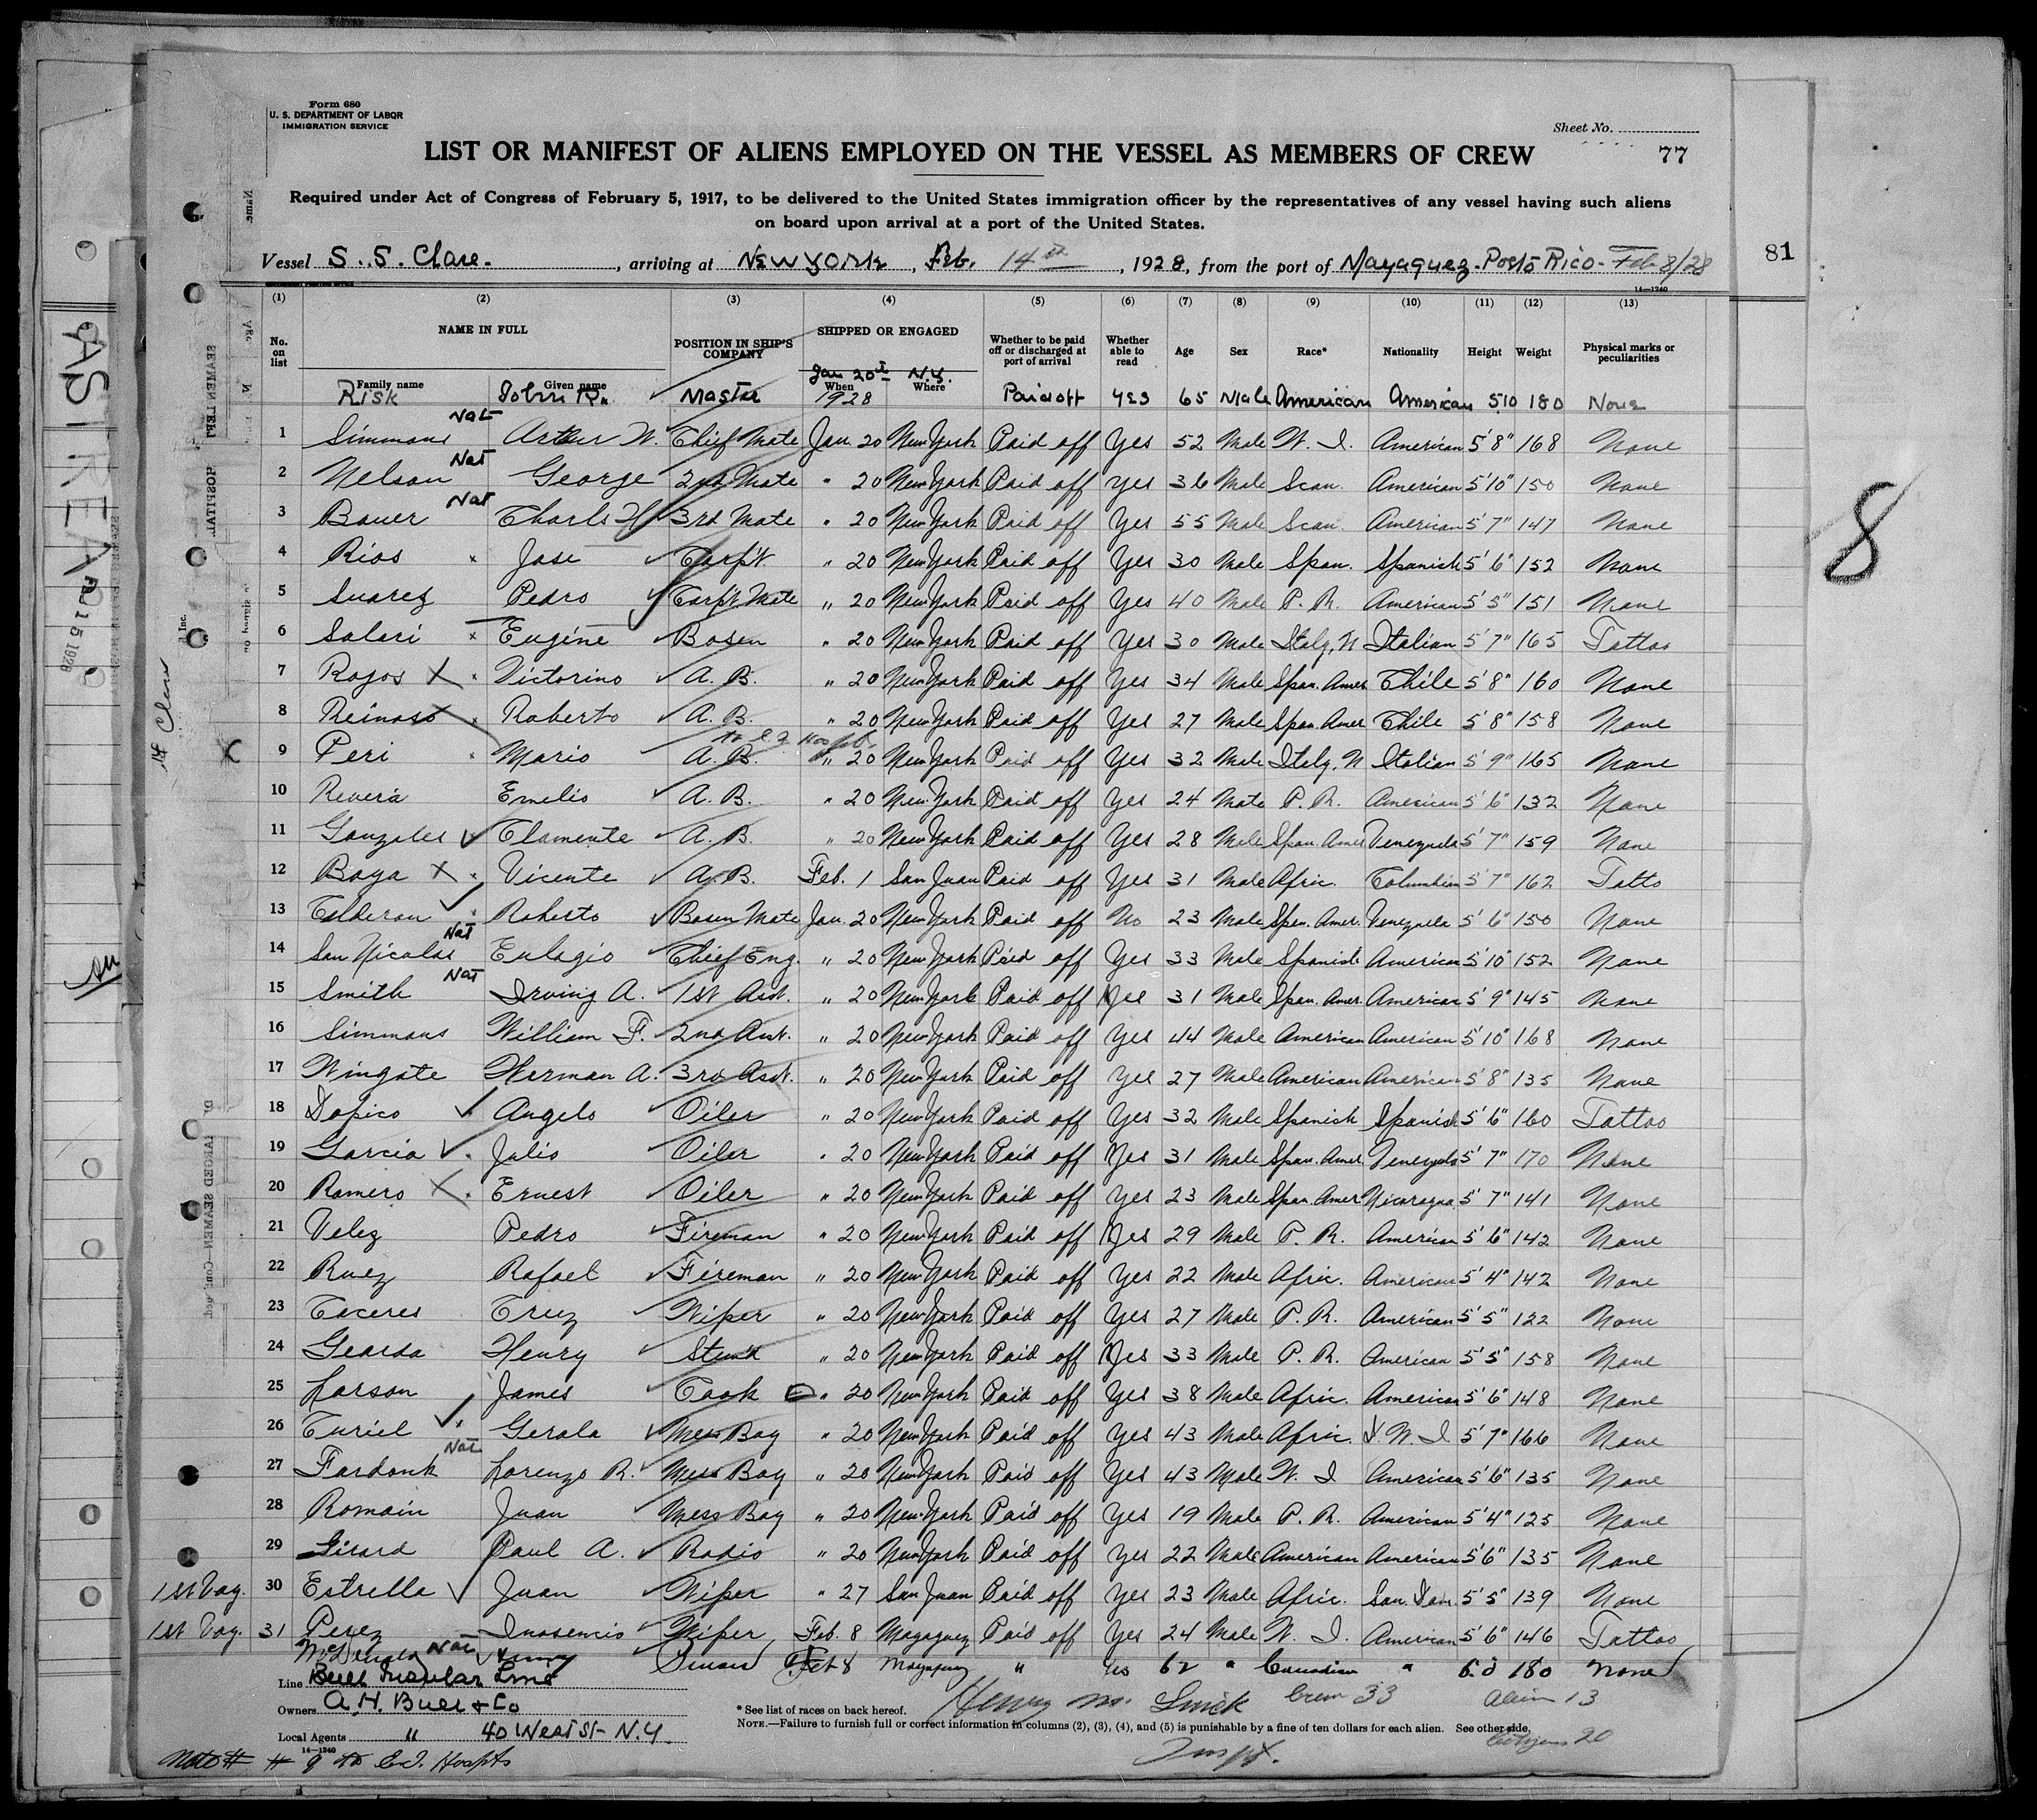 Form 680
U. S. DEPARTMENT OF LABOR
IMMIGRATION SERVICE
Sheet No.
LIST OR MANIFEST OF ALIENS EMPLOYED ON THE VESSEL AS MEMBERS OF CREW
77
Required under Act of Congress of February 5, 1917, to be delivered to the United States immigration officer by the representatives of any vessel having such aliens
on board upon arrival at a port of the United States.
81
Vessel S. S. Clare. , arriving at New York , Feb. 14th , 1928, from the port of Mayaguez - Porto Rico - Feb 8/28
14—1240
(1) (2) (3) (4) (5) (6) (7) (8) (9) (10) (11) (12) (13)
No. on list NAME IN FULL POSITION IN SHIP'S COMPANY SHIPPED OR ENGAGED Whether to be paid off or discharged at port of arrival Whether able to read Age Sex Race* Nationality Height Weight Physical marks or peculiarities
Family name Given name When Where
Risk John R. Master Jan 20th 1928 N.Y. Paid off yes 65 Male American American 510 180 None
1 Simmons Nat Arthur W. Chief Mate Jan. 20 New York Paid off Yes 52 Male W. I. American 5'8" 168 None
2 Nelson Nat George 2nd Mate " 20 New York Paid off Yes 36 Male Scan. American 5'10" 150 None
3 Bauer Nat Charls H 3rd Mate " 20 New York Paid off Yes 55 Male Scan. American 5'7" 147 None
4 Rios Jose Carpt " 20 New York Paid off Yes 30 Male Span. Spanish 5'6" 152 None
5 Suarez Pedro Carpt. Mate " 20 New York Paid off Yes 40 Male P. R. American 5'5" 151 None
6 Solari Eugene Bosen " 20 New York Paid off Yes 30 Male Italy, N Italian 5'7" 165 Tattoo
7 Rojos X Victorino A. B. " 20 New York Paid off Yes 34 Male Span. Amer Chile 5'8" 160 None
8 Reinoso X Roberto A. B. " 20 New York Paid off Yes 27 Male Span. Amer Chile 5'8" 158 None
to E I Hospt.
X 9 Peri Mario A. B. " 20 New York Paid off Yes 32 Male Italy, N Italian 5'9" 165 None
10 Rivera Emelio A. B. " 20 New York Paid off Yes 24 Male P. R. American 5'6" 132 None
11 Gonzales Clamente A. B. " 20 New York Paid off Yes 28 Male Span. Amer Venezuela 5'7" 159 None
12 Baya X Vicente A. B. Feb. 1 San Juan Paid off Yes 31 Male Afric. Columbian 5'7" 162 Tatto
13 Calderon Roberto Bosen Mate Jan. 20 New York Paid off No 23 Male Span. Amer. Venezuela 5'6" 150 None
14 San Nicolas Nat Eulogio Chief Eng. " 20 New York Paid off Yes 33 Male Spanish American 5'10" 152 None
15 Smith Nat Irving A. 1st Asst. " 20 New York Paid off Yes 31 Male Span. Amer. American 5'9" 145 None
16 Simmons William F. 2nd Asst. " 20 New York Paid off Yes 44 Male American American 5'10" 168 None
17 Wingate Herman A. 3rd Asst. " 20 New York Paid off Yes 27 Male American American 5'8" 135 None
18 Dopico Angelo Oiler " 20 New York Paid off Yes 32 Male Spanish Spanish 5'6" 160 Tattoo
19 Garcia Julio Oiler " 20 New York Paid off Yes 31 Male Span. Amer. Venezuela 5'7" 170 None
20 Romero X Ernest Oiler " 20 New York Paid off Yes 23 Male Span. Amer Nicaragua 5'7" 141 None
21 Velez Pedro Fireman " 20 New York Paid off Yes 29 Male P. R. American 5'6" 142 None
22 Ruez Rafael Fireman " 20 New York Paid off Yes 22 Male Afric. American 5'4" 142 None
23 Caceres Cruz Wiper " 20 New York Paid off Yes 27 Male P. R. American 5'5" 122 None
24 Gearda Henry Stew'd " 20 New York Paid off Yes 33 Male P. R. American 5'5" 158 None
25 Larson James Cook " 20 New York Paid off Yes 38 Male Afric. American 5'6" 148 None
26 Curiel Gerald Mess Boy " 20 New York Paid off Yes 43 Male Afric. D. W. I 5'7" 166 None
27 Fardonk Nat Lorenzo R. Mess Boy " 20 New York Paid off Yes 43 Male W. I American 5'6" 135 None
28 Romain Juan Mess Boy " 20 New York Paid off Yes 19 Male P. R. American 5'4" 125 None
29 Girard Paul A. Radio " 20 New York Paid off Yes 22 Male American American 5'6" 135 None
1st Voy. 30 Estrella Juan Wiper " 27 San Juan Paid off Yes 23 Male Afric. San. Dom. 5'5" 139 None
1st Voy. 31 Perez Inosencio Wiper Feb. 8 Mayaguez Paid off Yes 24 Male W. I. American 5'6" 146 Tattoo
McDonald Nat Henry Feb 8 Mayaguez " Yes 62 " Canadian " 6.0 180 None
Line Bull Insular Line
Owners A. H. Bull & Co
Local Agents " 40 West St - N.Y.
14—1240
* See list of races on back hereof.
Henry M. Crew 33 Alien 13
NOTE.—Failure to furnish full or correct information in columns (2), (3), (4), and (5) is punishable by a fine of ten dollars for each alien. See other side.
Citizens 20
Inspt.
Note # # 9 to E.I. Hospts
8
ASTREA
15 1928